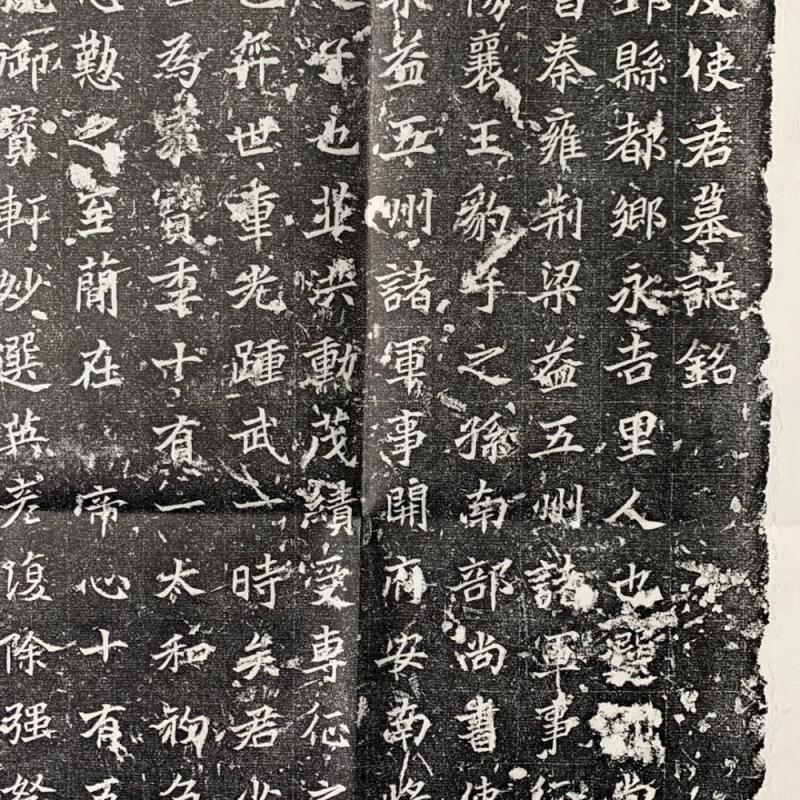 使君墓誌銘
邳縣都鄉永吉里人也
秦雍荊梁益五州諸軍事
襄王豹子之孫南部尚書使
益五州諸軍事開府安南將
子也並洪勳茂績受專征之
弈世重光踵武一時矣君少
為資季十有一太和初
懃之至蕳在 帝心十有五
御寶軒妙選英彥復除强弩